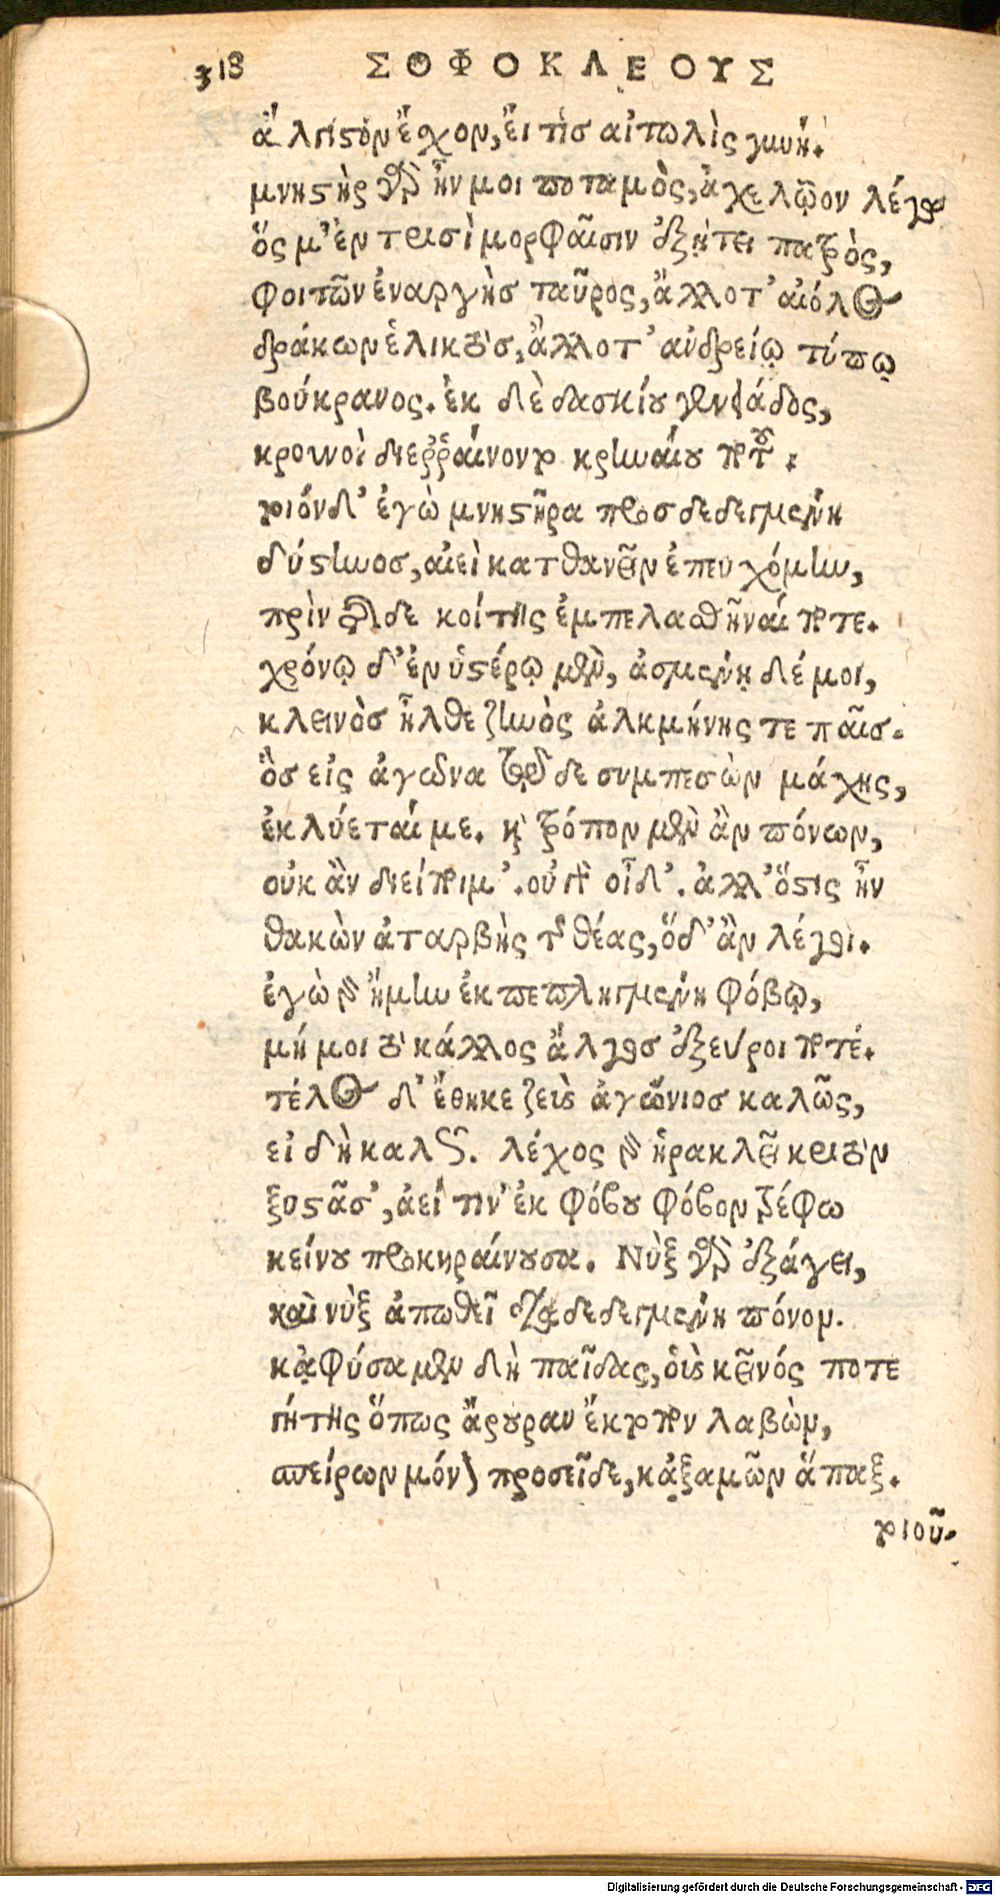 318 ΣΟΦΟΚΛΕΟΥΣ
ἄλγιστον ἔσχον, εἴ τις αἰτωλὶς γυνή.
μνηστὴρ γὰρ ἦν μοι ποταμὸς, ἀχελῷον λέγω
ὅς μ’ ἐν τρισὶ μορφαῖσιν ἐξῄτει πατρὸς,
φοιτῶν ἐναργὴς ταῦρος, ἄλλοτ’ αἰόλος
δράκων ἑλικτὸς, ἄλλοτ’ ἀνδρείῳ τύπῳ
βούκρανος. ἐκ δὲ δασκίου γενειάδος,
κρουνοὶ διερῤῥαίνοντο κρηναίου ποτοῦ.
τοιόνδ’ ἐγὼ μνηστῆρα προσδεδεγμένη
δύστηνος, αἰεὶ κατθανεῖν ἐπευχόμην,
πρὶν τῆσδε κοίτης ἐμπελασθῆναί ποτε.
χρόνῳ δ’ ἐν ὑστέρῳ μὲν, ἀσμένῃ δέ μοι,
κλεινὸς ἦλθε ζηνὸς ἀλκμήνης τε παῖς.
ὃς εἰς ἀγῶνα τῷδε συμπεσὼν μάχης,
ἐκλύεταί με. καὶ τρόπον μὲν ἂν πόνων,
οὐκ ἂν διείποιμ’. οὐ γὰρ οἶδ’. ἀλλ’ ὅστις ἦν
θακῶν ἀταρβὴς τῆς θέας, ὅδ’ ἂν λέγοι.
ἐγὼ γὰρ ἥμην ἐκπεπληγμένη φόβῳ,
μή μοι τὸ κάλλος ἄλγος ἐξεύροι ποτέ.
τέλος δ’ ἔθηκε ζεὺς ἀγώνιος καλῶς,
εἰ δὴ καλῶς. λέχος γὰρ ἡρακλεῖ κριτὸν
ξυστᾶσ’, ἀεί τιν’ ἐκ φόβου φόβον τρέφω
κείνου προκηραίνουσα. Νὺξ γὰρ ἐξάγει,
καὶ νὺξ ἀπωθεῖ διαδεδεγμένη πόνον.
κᾀφύσαμεν δὴ παῖδας, οἷς κεῖνός ποτε
γῄτης ὅπως ἄρουραν ἔκτοπον λαβὼν,
σπείρων μόνον προσεῖδε, κἀξαμῶν ἅπαξ.
τοιοῦ-
Digitalisierung gefördert durch die Deutsche Forschungsgemeinschaft - DFG